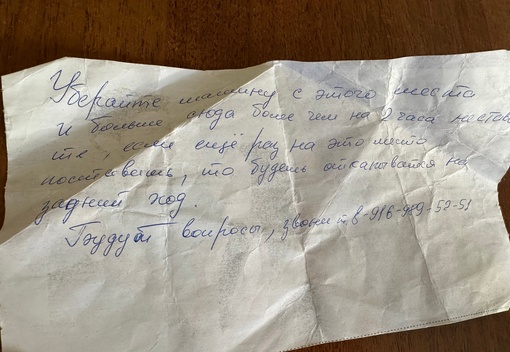 Уберайте машину с этого места
и больше сюда более чем на 2 часа не став
те, если ещё раз на это место
поставишь, то будешь откапыватся на
задний ход.
Будут вопросы, звоните 8-916-989-52-51